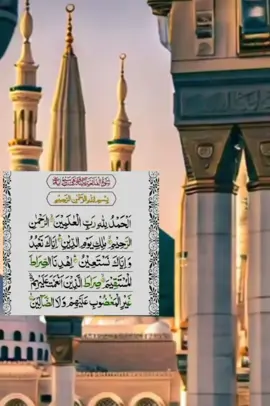 بِسْمِ اللهِ الرَّحْمٰنِ الرَّحِيْمِ
اَلْحَمْدُ لِلّٰهِ رَبِّ الْعٰلَمِيْنَ الرَّحْمٰنِ
الرَّحِيْمِ مٰلِكِ يَوْمِ الدِّيْنِ اِيَّاكَ نَعْبُدُ
وَ اِيَّاكَ نَسْتَعِيْنُ اِهْدِنَا الصِّرَاطَ
الْمُسْتَقِيْمَ صِرَاطَ الَّذِيْنَ اَنْعَمْتَ عَلَيْهِمْ
غَيْرِ الْمَغْضُوْبِ عَلَيْهِمْ وَلَا الضَّآلِّيْنَ